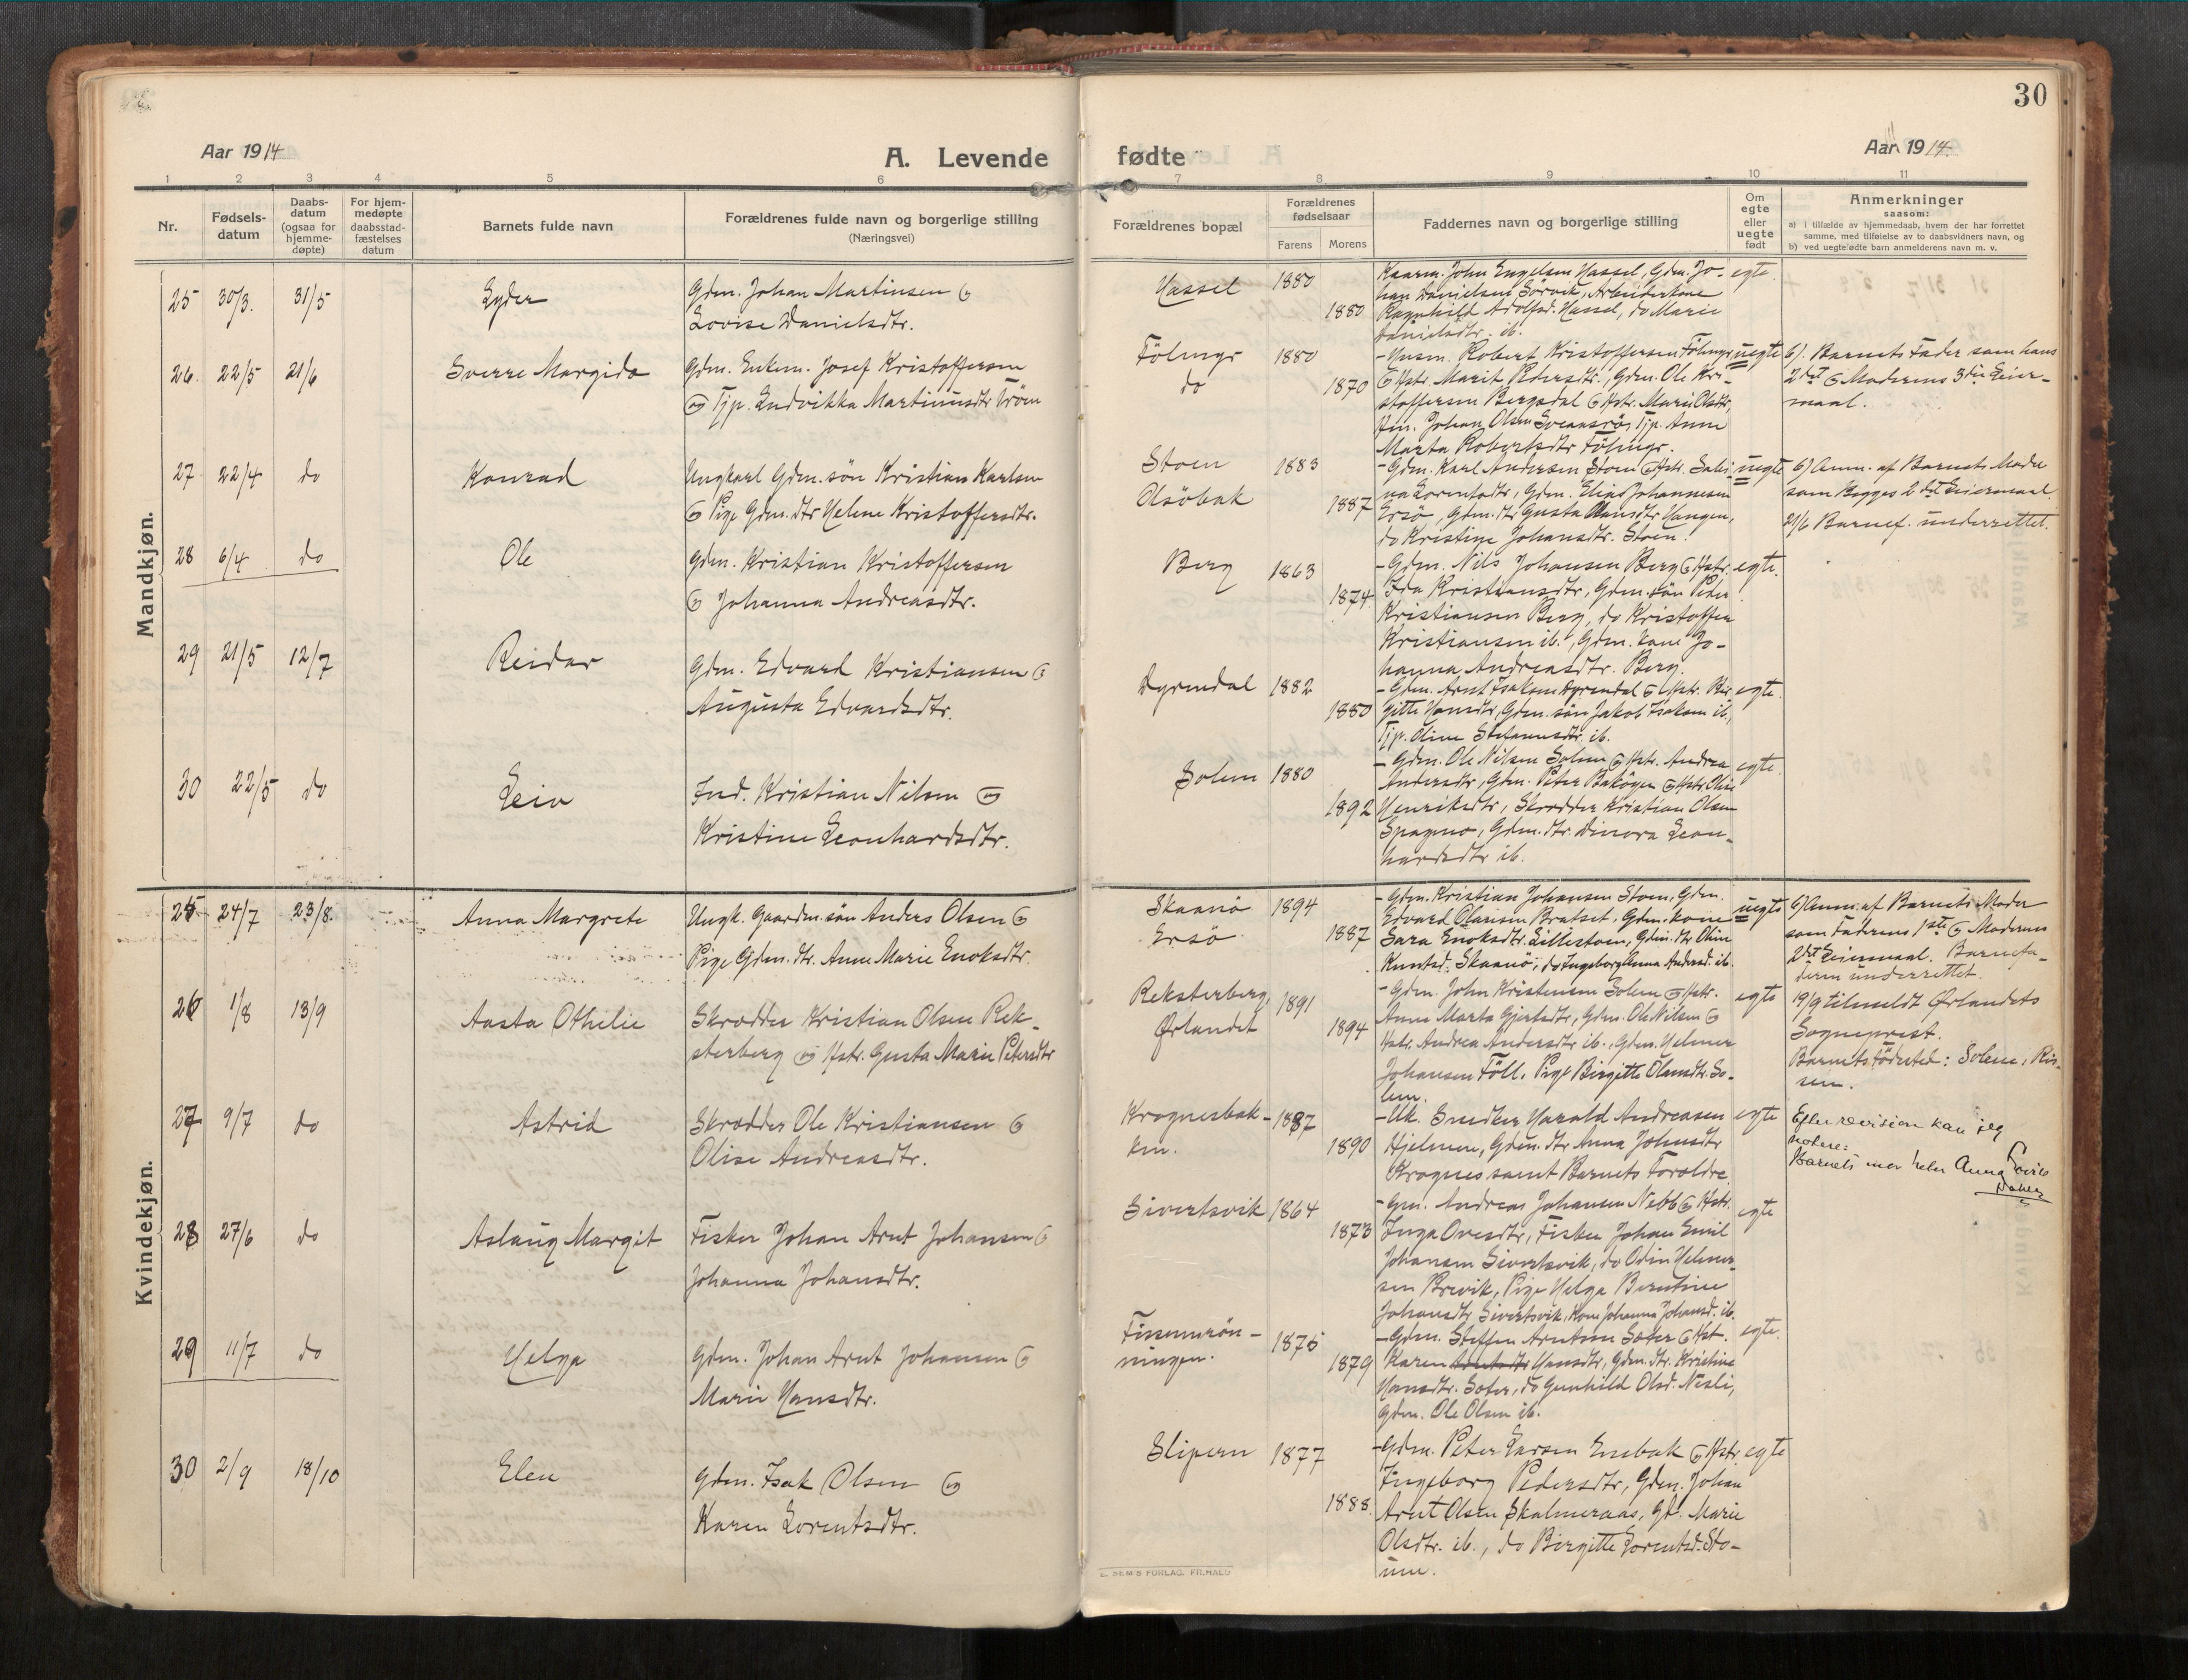 30
Aar 1914
A. Levende
fødte
Aar 1914.
1 2 3 4 5 6 7 8 9 10 11
Nr.
Fødsels-
datum
Daabs-
datum
(ogsaa for
hjemme-
døpte)
For hjem-
medøpte
daabsstad-
fæstelses
datum
Barnets fulde navn
Forældrenes fulde navn og borgerlige stilling
(Næringsvei)
Forældrenes bopæl
Forældrenes
fødselsaar
Farens Morens
Faddernes navn og borgerlige stilling
Om
egte
eller
uegte
født
Anmerkninger
saasom:
a) i tilfælde av hjemmedaab, hvem der har forrettet
samme, med tilføielse av to daabsvidners navn, og
b) ved uegtefødte barn anmelderens navn m. v.
Mandkjøn.
25 30/3. 31/5 Eyder
Gdm. Johan Martinsen og
Lovise Danielsdtr.
Hassel 1880
1880
Kaarm. John Engelsen Hassel, Gdm. Jo-
han Danielsen Sörvik, Arbeiderkone
Ragnhild Adolfsd. Hassel, do Marie
Danielsdtr. ib.
egte.
26. 22/5 21/6 Sverre Margido
Gdm. Enkem. Josef Kristoffersen
og Tjp. Ludvikka Martinusdtr Tröen
Fölinge 1880
do 1870
- Husm. Robert Kristoffersen Fölinge
og Hstr. Marit Pedersdtr., Gdm. Ole Kri-
stoffersen Bergsdal og Hstr. Marie Olsdtr,
Johan Olsen Sveansrö, Tjp. Anne
Marta Robertsdtr Fölinge.
uegte
b). Barnets Fader som hans
2det og Moderens 3die Leier-
maal.
27 22/4 do Konrad
Ungkarl Gdm. sön Kristian Karlsen
og Pige Gdm. dtr Helene Kristoffersdtr.
Stoen 1883
Olsöbak 1887
- Gdm. Karl Andersen Stoen og Hstr. Sabi-
na Lorentsdtr, Gdm. Elias Johannesen
Ersö, Gdm. dtr Gusta Hansdtr Hangen,
do Kristine Johansdtr. Stoen.
uegte
b) Anm. af Barnets Moder
som Begges 2det Leiermaal.
21/6 Barnef. underrettet.
28 6/4 do Ole
Gdm. Kristian Kristoffersen
og Johanna Andreasdtr.
Berg 1863
1874
- Gdm. Nils Johansen Berg og Hstr.
Ida Kristiansdtr, Gdm. sön Peder
Kristiansen Berg, do Kristoffer
Kristiansen ib., Gdm. kone Jo-
hanna Andreasdtr. Berg.
egte.
29 21/5 12/7 Reidar
Gdm. Edvard Kristiansen og
Augusta Edvardsdtr.
Dyrendal 1882
1880
- Gdm. Arnt Isaksen Dyrendal og Hstr. Bir-
gitte Hansdtr, Gdm. sön Jakob Isaksen ib,
Tjp. Oline Stefanusdtr. ib.
egte.
30 22/5 do Leiv
Ind. Kristian Nilsen og
Kristine Leonhardsdtr.
Solem 1880
1892
- Gdm. Ole Nilsen Solem og Hstr. Andrea
Andersdtr, Gdm. Peter Baköyen og Hstr. Oline
Henriksdtr, Skrædder Kristian Olsen
Gdm. dtr. Dinora Leon-
hardsdtr ib.
egte.
Kvindekjøn.
25 24/7 23/8. Anna Margrete
Ungk. Gaardm. sön Anders Olsen og
Pige Gdm. dtr. Anne Marie Enoksdtr.
Skaanö 1894
Ersö 1887
- Gdm. Kristian Johansen Stoen, Gdm.
Edvard Bratset, Gdm. kone
Sara Enoksdtr. Lillestoen, Gdm. dtr Oline
Knutsd. Skaanö, do Ingeborg Anna Andersd. ib.
uegte
b) Anm. af Barnets Moder
som Faderens 1ste og Moderens
2det Leiermaal. Barnefa-
deren underrettet.
26 1/8 13/9 Aasta Othilie
Skrædder Kristian Olsen Rek-
sterberg og Hstr. Gusta Marie Petersdtr
Reksterberg, 1891
Ørlandet 1894
- Gdm. John Kristensen Solem og Hstr.
Anne Marta Gjertsdtr, Gdm. Ole Nilsen og
Hstr. Andrea Andersdtr ib., Gdm. Helmer
Johansen Föll, Pige Birgitte Olausdtr. So-
lem.
egte
19/9 tilmeldt Ørlandets
Sogneprest.
Barnets Födested: Solem, Ris-
sen.
27 9/7 do Astrid
Skrædder Ole Kristiansen og
Olise Andreasdtr.
Kragnesbak- 1887
ken. 1890
- Uk. Snedker Harald Andreasen
Hjelmen, Gdm. dtr Anna Johnsdtr
Kragnes samt Barnets Forældre.
egte
Efter revision kan jeg
notere:
Barnets mor heter Anna Lovise
28 27/6 do Aslaug Margit
Fisker Johan Arnt Johansen og
Johanna Johansdtr.
Sivertsvik 1864
1873
- Gm. Andreas Johansen Nebb og Hstr.
Inga Ovesdtr, Fisker Johan Emil
Johansen Sivertsvik, do Odin Helmer-
sen Brevik, Pige Helga Berntine
Johansdtr Sivertsvik, Kone Johanna Johansd. ib.
egte
29 11/7 do Helga
Gdm. Johan Arnt Johansen og
Marie Hansdtr.
Fissumrön- 1875
ningen. 1879
- Gdm. Steffen Arntsen Sæter og Hst.
Karen Arntsdtr Hansdtr, Gdm. dtr. Kristine
Hansdtr. Sæter, do Gunhild Olsd. Nesli,
Gdm. Ole Olsen ib.
egte.
30 2/9 18/10 Elen
Gdm. Isak Olsen og
Karen Lorentsdtr.
Slipern 1877
1888.
- Gdm. Peter Larsen Enebak og Hstr.
Ingeborg Pedersdtr, Gdm. Johan
Arnt Olsen Skalmeraas, Gt. Marie
Olsdtr. ib., do Birgitte Lorentsd. Sto-
uen.
egte
E. SEM'S FORLAG, FR.HALD